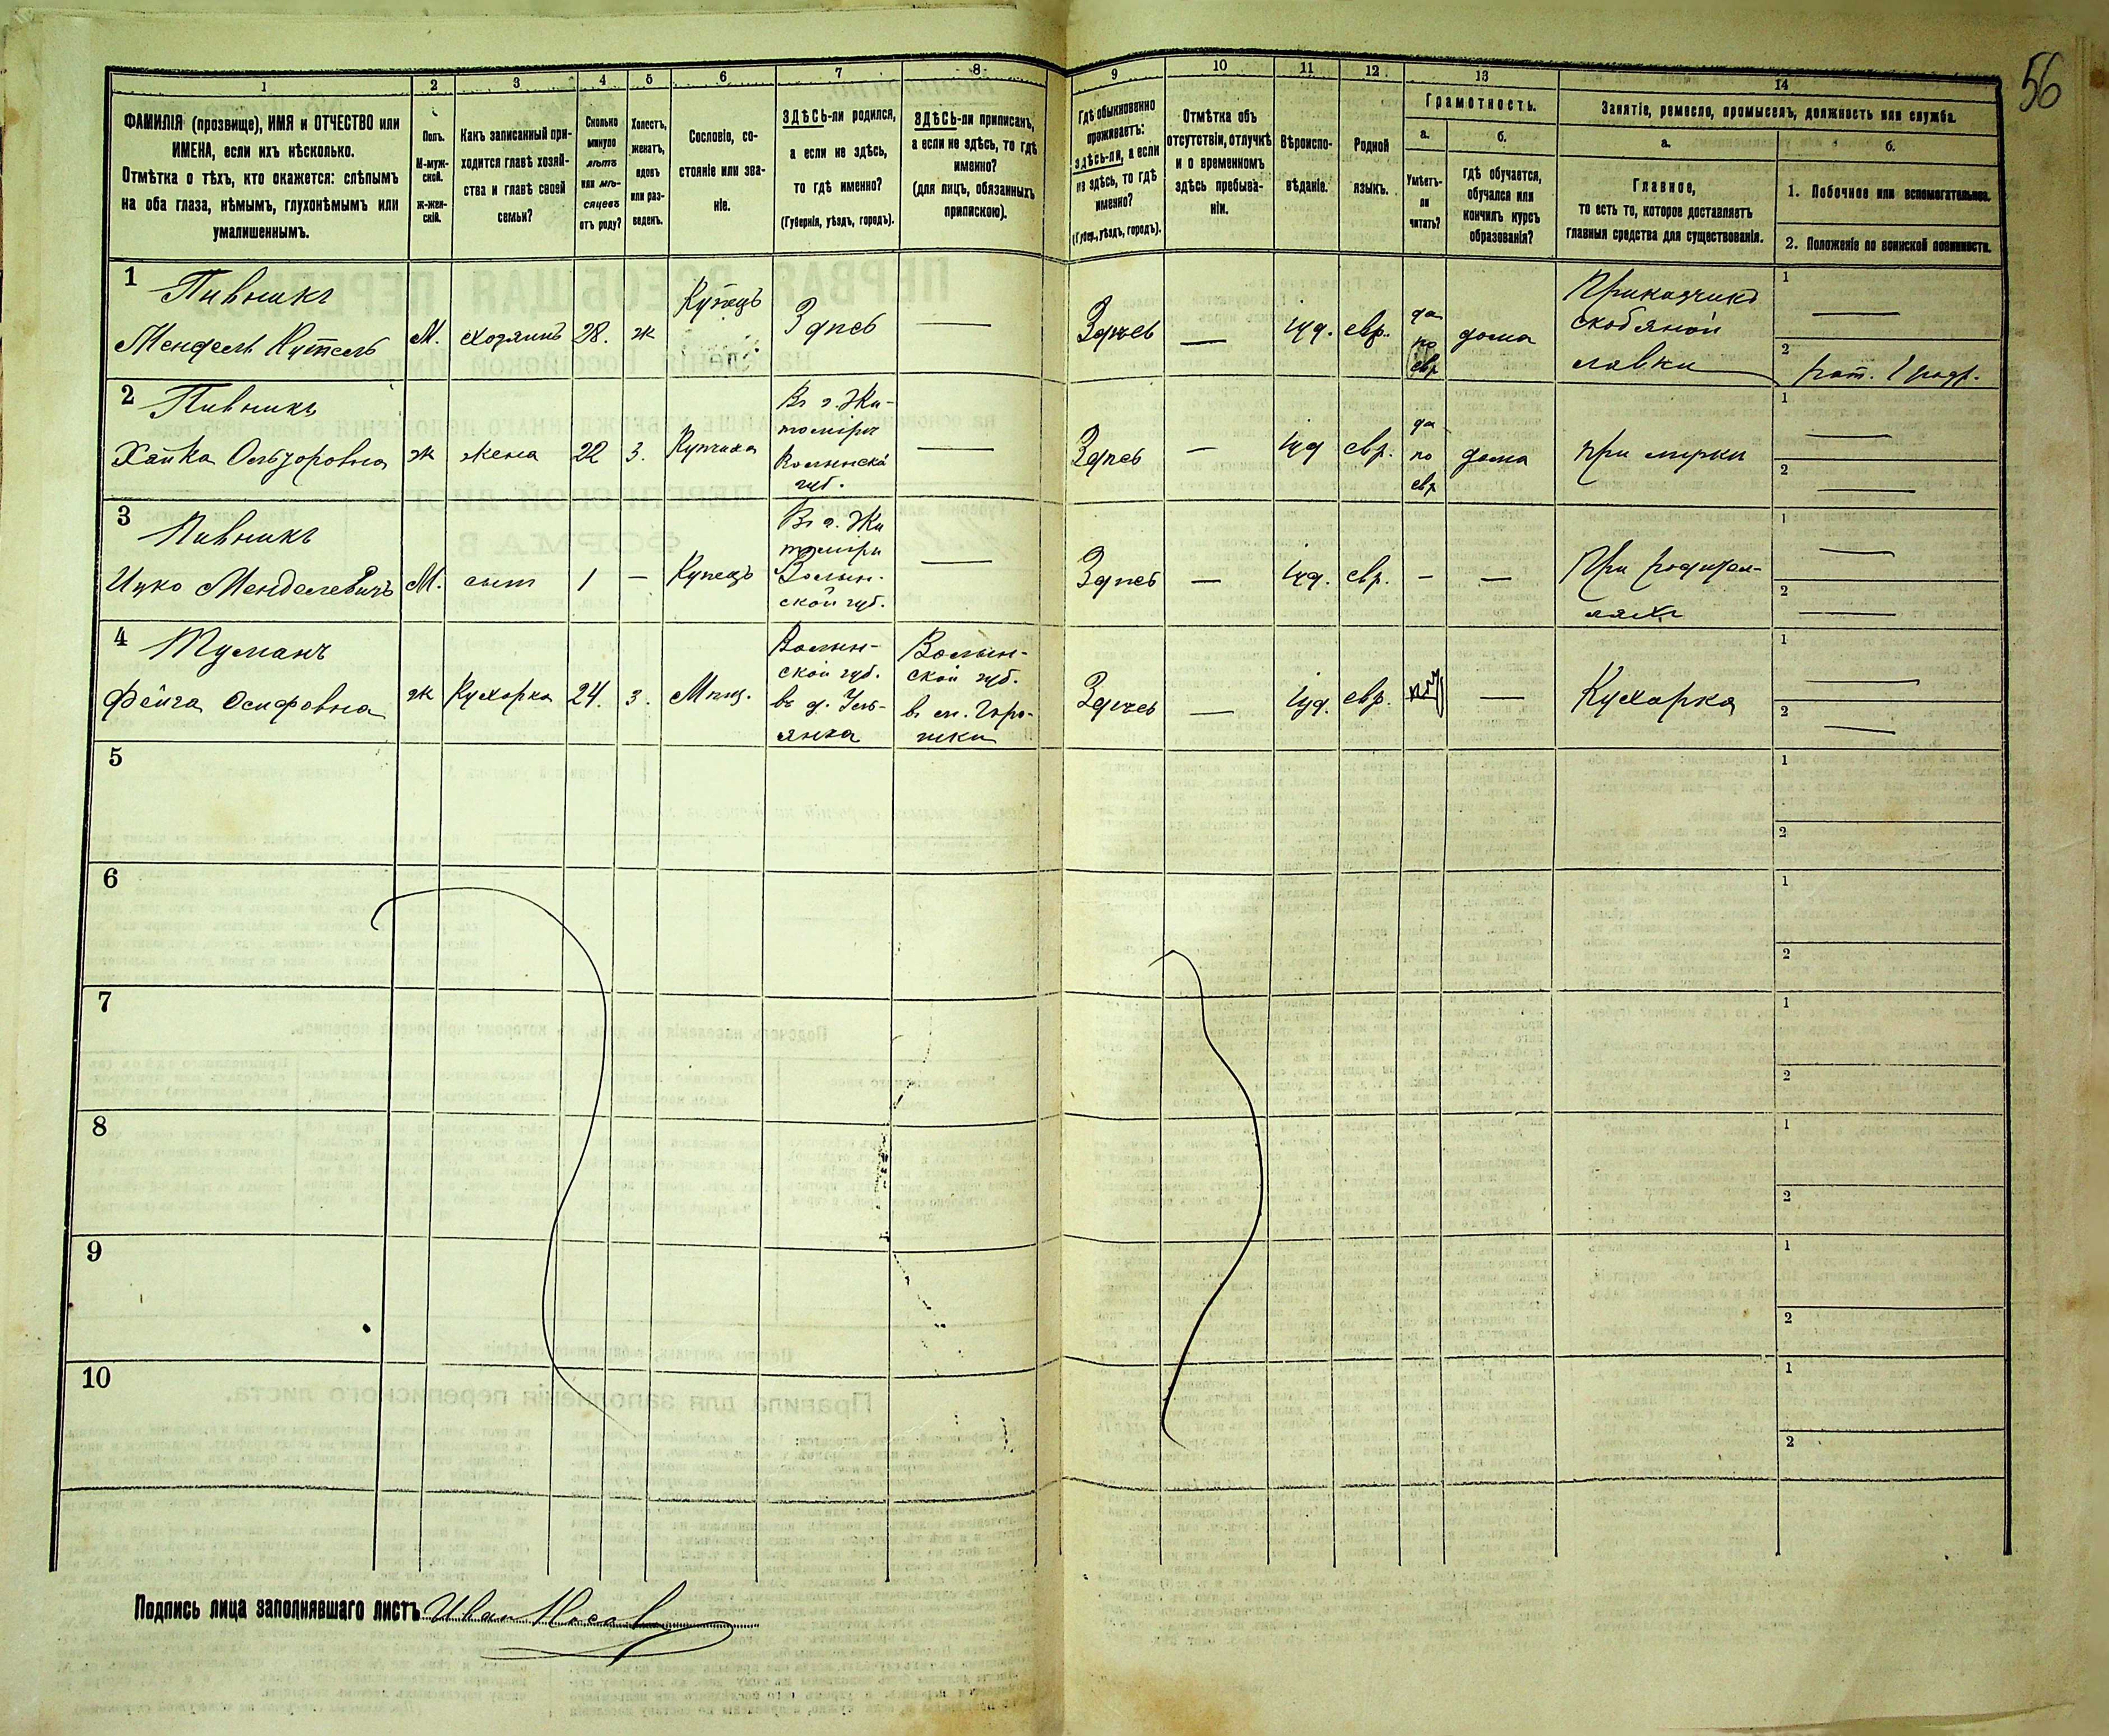 56
1
2
3
4
5
6
7
8
9
10
11
12
13
14
ФАМИЛІЯ (прозвище), ИМЯ и ОТЧЕСТВО или
ИМЕНА, если ихъ нѣсколько.
Отмѣтка о тѣхъ, кто окажется: слѣпымъ
на оба глаза, нѣмымъ, глухонѣмымъ или
умалишеннымъ.
Полъ.
М-муж-
ской.
Ж-жен-
скій.
Какъ записанный при-
ходится главѣ хозяй-
ства и главѣ своей
семьи?
Сколько
минуло
лѣтъ
или мѣ-
сяцевъ
отъ роду?
Холостъ,
женатъ,
вдовъ
или раз-
веденъ.
Сословіе, со-
стояніе или зва-
ніе.
ЗДѢСЬ-ли родился,
а если не здѣсь,
то гдѣ именно?
(Губернія, уѣздъ, городъ).
ЗДѢСЬ-ли приписанъ,
а если не здѣсь, то гдѣ
именно?
(для лицъ, обязанныхъ
припискою).
Гдѣ обыкновенно
проживаетъ:
здѣсь-ли, а если
не здѣсь, то гдѣ
именно?
(Губер., уѣздъ, городъ).
Отмѣтка объ
отсутствіи, отлучкѣ
и о временномъ
здѣсь пребыва-
ніи.
Вѣроиспо-
вѣданіе.
Родной
языкъ.
Грамотность.
а.
Умѣетъ-
ли
читать?
б.
гдѣ обучается,
обучался или
кончилъ курсъ
образованія?
Занятіе, ремесло, промыселъ, должность или служба.
а.
Главное,
то есть то, которое доставляетъ
главныя средства для существованія.
б.
1. Побочное или вспомогательное.
2. Положеніе по воинской повинности.
1
Пивникъ
Мендель
М.
хозяинъ
28.
ж
Купецъ
Здѣсь
—
Здѣсь
—
Іуд.
евр.
да
по
евр
дома
Приказчикъ
скобяной
лавки
1
—
2
2
Пивникъ
Хайка
ж
жена
22
З.
Купчиха
Въ г. Жи-
томірѣ
Волынской
губ.
—
Здѣсь
—
Іуд
евр.
да
по
евр
дома
при мужѣ
1
—
2
—
3
Пивникъ
Ицко Менделевичъ
М.
сынъ
1
—
Купецъ
Въ г. Жи
томірѣ
Волын-
ской губ.
—
Здѣсь
—
Іуд.
евр.
—
—
При родител-
ляхъ
1
—
2
—
4
Туманъ
Фейга Осифовна
ж
Кухарка
24.
з.
Мѣщ.
Волын-
ской губ.
въ д. Уль-
янка
Волын-
ской губ.
въ м. Горо-
шки
Здѣсь
—
Іуд.
евр.
нѣт
—
Кухарка
1
—
2
—
5
1
2
6
1
2
7
1
2
8
1
2
9
1
2
10
1
2
Подпись лица заполнявшаго листъ Иван Носов